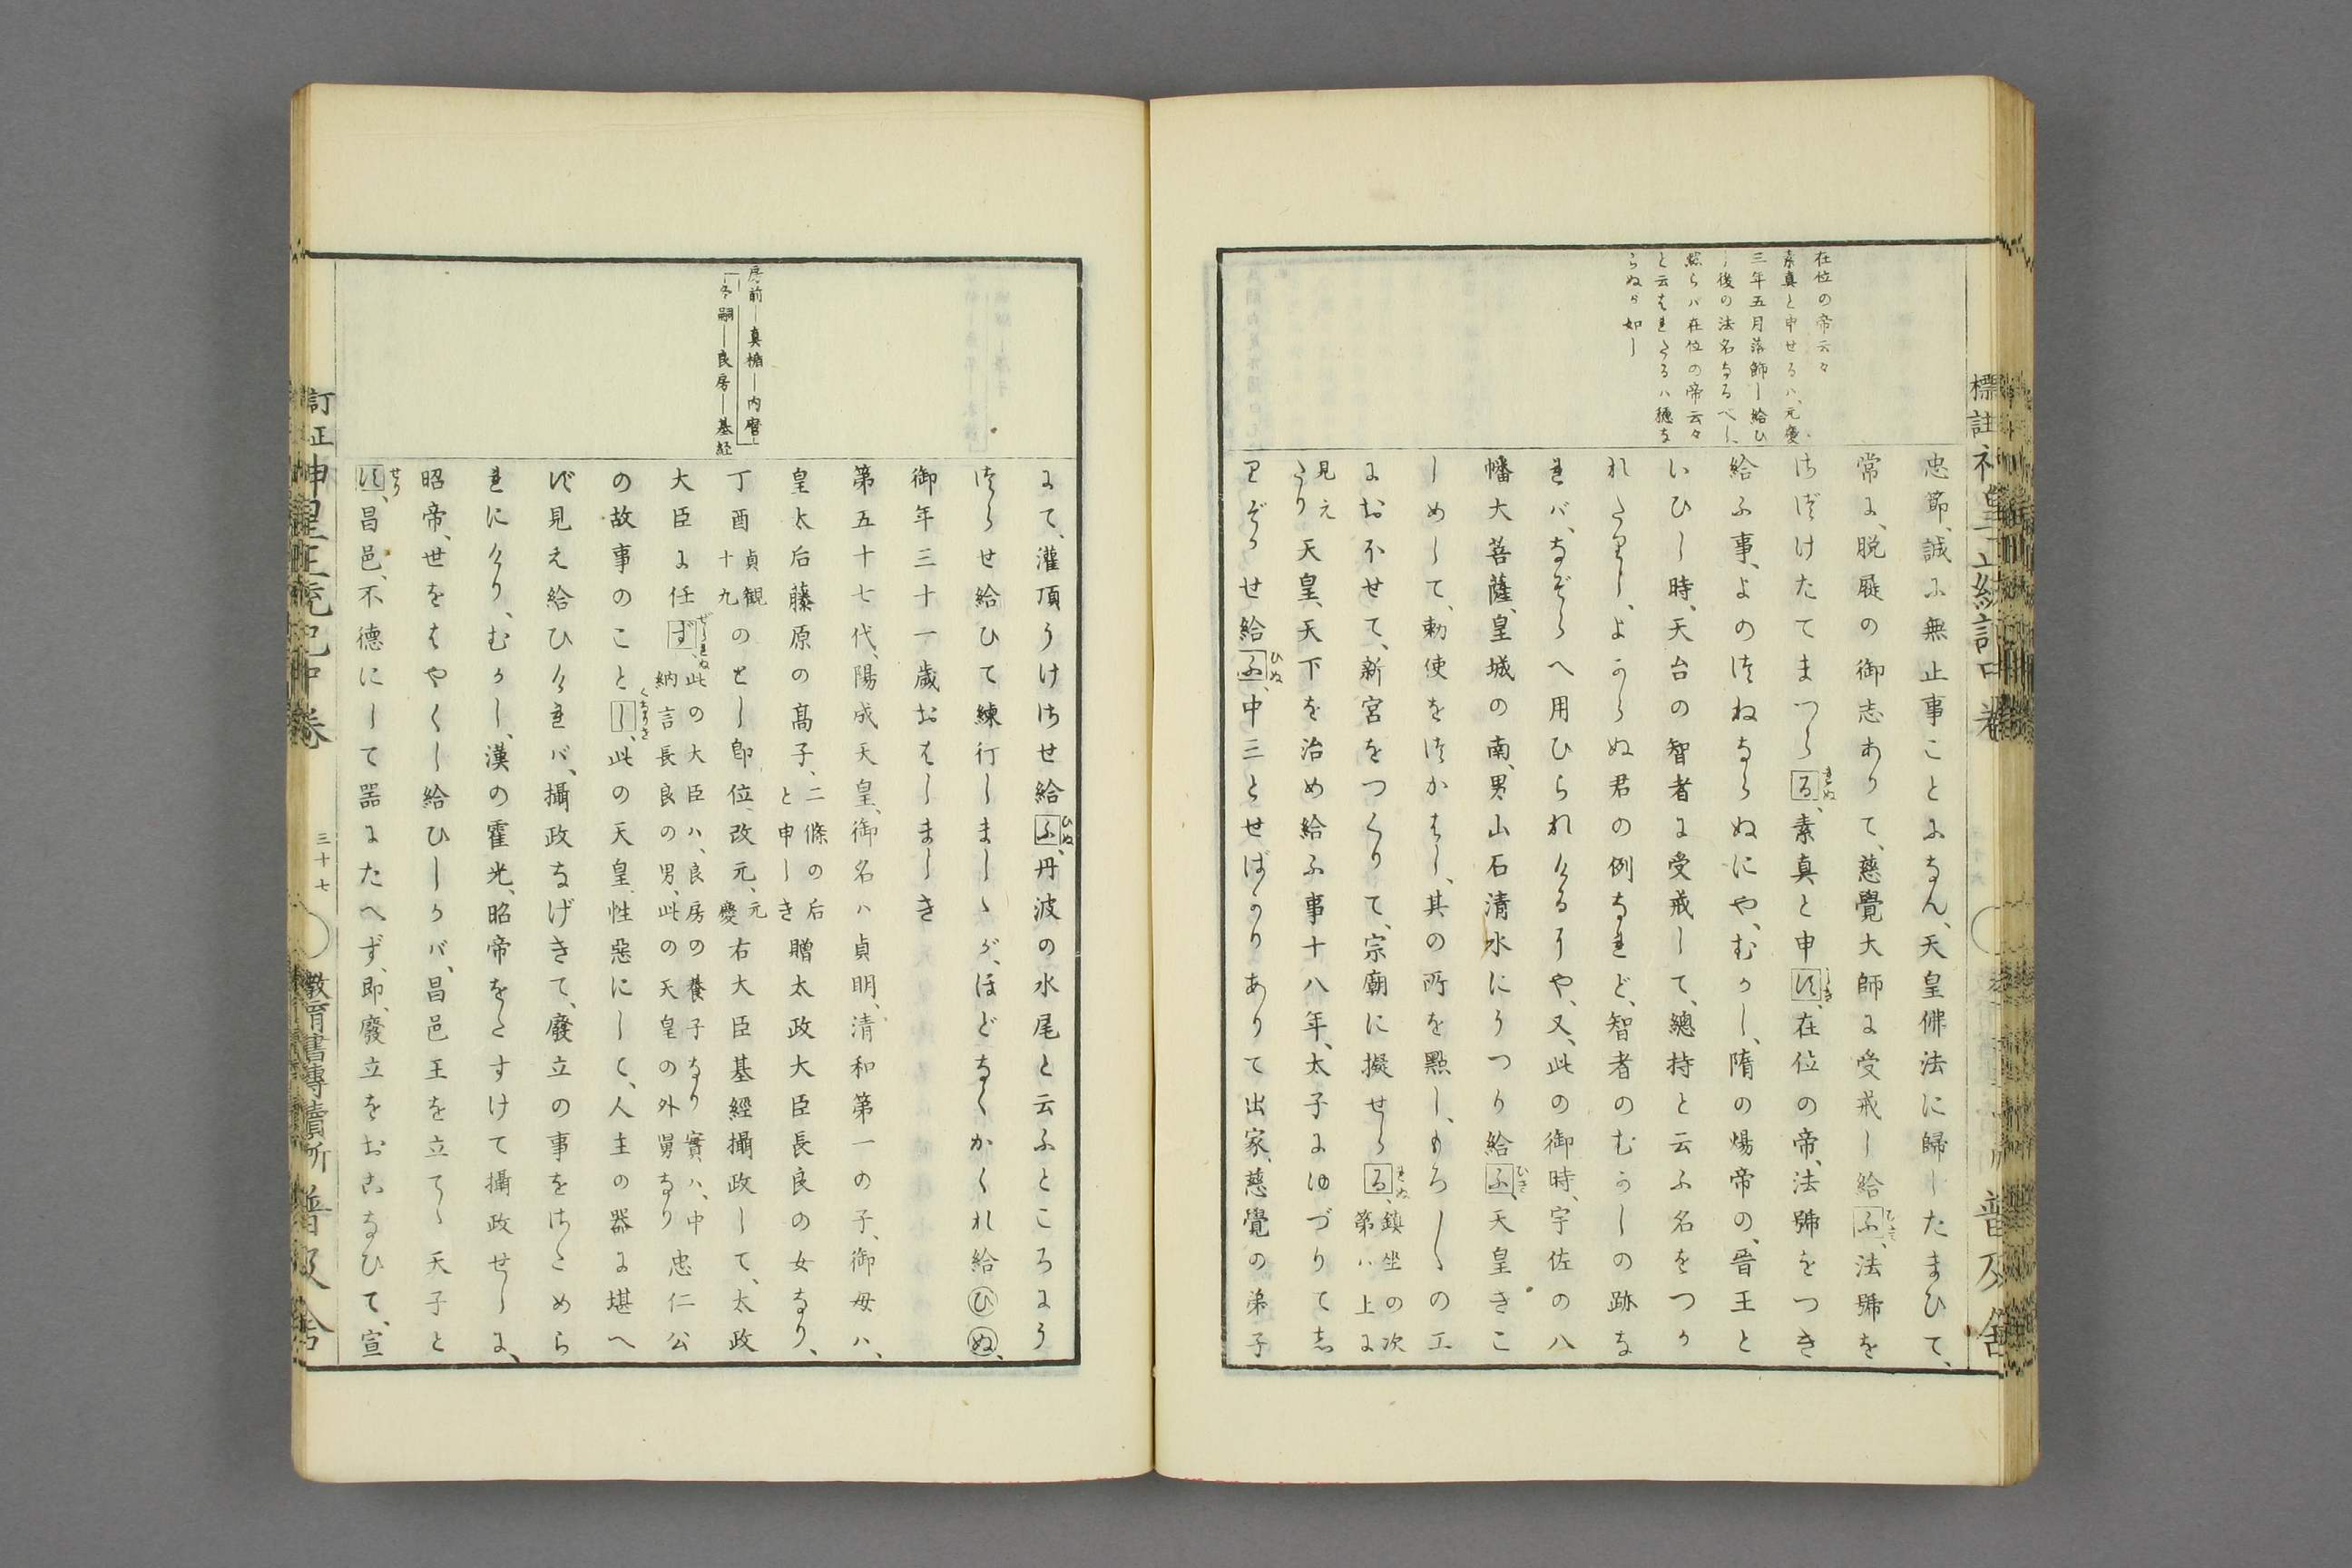 標註
在位の帝云々
素真と申せるハ、元慶
三年五月落飾し給ひ
し後の法名なるべし、
然らバ在位の帝云々
と云はれたるハ穏な
らぬが如し
忠節、誠に無止事ことになん、天皇佛法に歸したまひて、
常に、脱屣の御志ありて、慈覺大師に受戒し給ふ、法號を
さづけたてまつらる、素真と申す、在位の帝、法號をつき
給ふ事、よのつねならぬにや、むかし、隋の煬帝の、晋王と
いひし時、天台の智者に受戒して、總持と云ふ名をつか
れたりし、よからぬ君の例なれど、智者のむかしの跡な
れバ、なぞらへ用ひられけるにや、又、此の御時、宇佐の八
幡大菩薩、皇城の南、男山石清水にうつり給ふ、天皇きこ
しめして、勅使をつかはし、其の所を點し、もろしの工
におほせて、新宮をつくりて、宗廟に擬せらる、鎮坐の次第ハ上に
見えたり 天皇、天下を治め給ふ事十八年、太子にゆづりて志
りぞかせ給ふ、中三とせばかりありて出家、慈覺の弟子
にて、灌頂うけさせ給ふ、丹波の水尾と云ふところにう
つらせ給ひて練行しましゝが、ほどなくかくれ給ひぬ、
御年三十一歳おはしましき
第五十七代、陽成天皇、御名ハ貞明、清和第一の子、御母ハ、
皇太后藤原の高子、二條の后と申しき 贈太政大臣長良の女なり、
丁酉 貞観十九 のとし即位、改元、元慶 右大臣基經攝政して、太政
大臣に任ず、此の大臣ハ、良房の養子なり 實ハ、中納言長良の男、此の天皇の外舅なり 忠仁公
の故事のことし、此の天皇、性惡にして、人主の器に堪へ
ず見え給ひけれバ、攝政なげきて、廢立の事をさためら
れにけり、むかし、漢の霍光、昭帝をたすけて攝政せしに、
昭帝、世をはやくし給ひしかバ、昌邑王を立てゝ天子と
す、昌邑、不德にして器にたへず、即、廢立をおこなひて、宣
房前―真楯―内麿―
―冬嗣―良房―基経
訂正神皇正統記中卷
三十七
教育書専賣所 普及舎